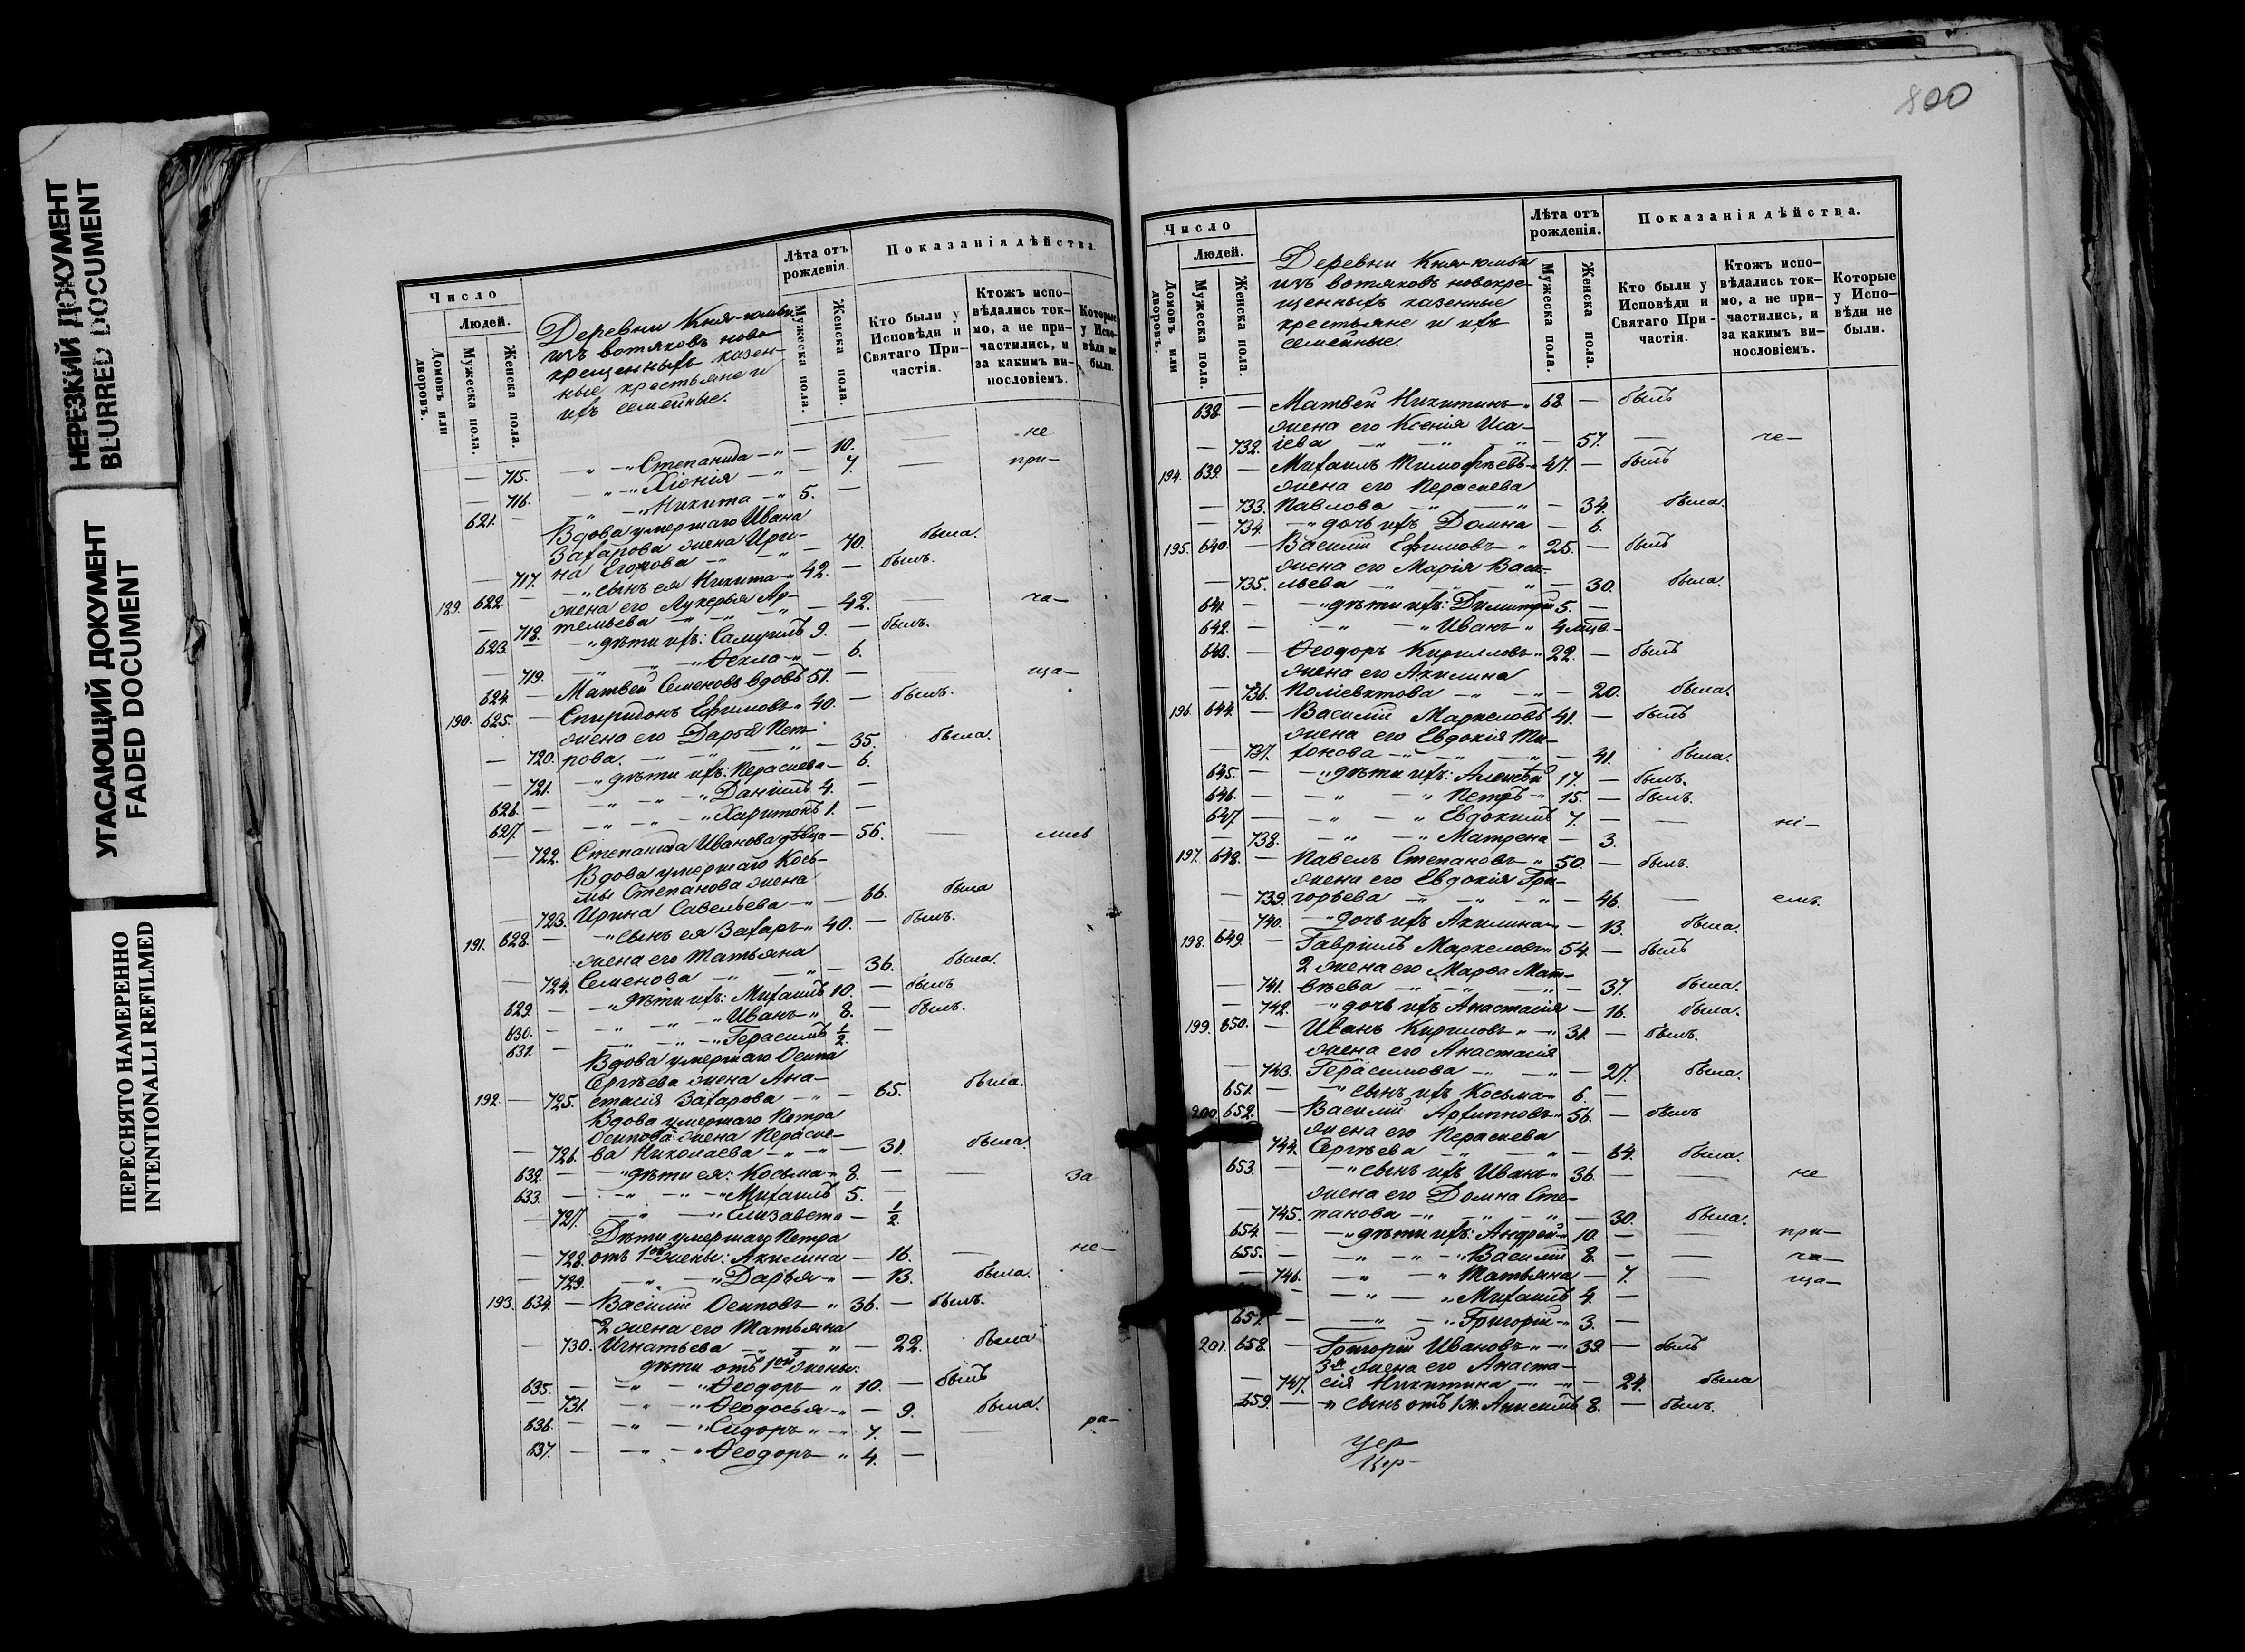 НЕРЕЗКИЙ ДОКУМЕНТ
BLURRED DOCUMENT
УГАСАЮЩИЙ ДОКУМЕНТ
FADED DOCUMENT
ПЕРЕСНЯТО НАМЕРЕННО
INTENTIONALLI REFILMED
Число
Людей.
Домовъ или дворовъ.
Мужеска пола.
Женска пола.
Деревни Княя-юмьи
изъ вотяковъ ново
крещенныхъ казен-
ные крестьяне и
ихъ семейные.
Лѣта отъ рожденія.
Мужеска пола.
Женска пола.
Показанія дѣйства.
Кто были у Исповѣди и Святаго При-частія.
Ктожъ испо-вѣдались ток-мо, а не при-частились, и за какимъ ви-нословіемъ.
Которые у Испо-вѣди не были.
— 715. — „ — „ Степанида — „ — 10. — не
— 716. — „ — „ Хіонія — „ — 7. — при-
621. — „ — „ Никита — „ 5. —
Вдова умершаго Ивана
Захарова жена Ири-
— 717. на Егорова — „ — „ — 70. была.
189. 622. — — „ сынъ ея Никита — „ 42. — былъ.
жена его Лукерья Ар-
— 718. темьева — „ — „ — 42. — ча-
623. — — „ дѣти ихъ: Самуилъ 9. — былъ.
— 719. — „ — „ Ѳекла — „ — 6.
624. — Матвей Семеновъ вдовъ 51. — — ща-
190. 625. — Спиридонъ Ефимовъ — „ 40. — былъ.
жена его Дарья Пет-
— 720. рова. — „ — „ — „ — 35. была.
— 721. — „ дѣти ихъ: Параскева — 6.
626. — — „ — „ — „ Даніилъ 4. —
627. — — „ — „ — „ Харитонъ 1. —
— 722. Степанида Иванова дѣвица — 56. — лись
Вдова умершаго Кось-
мы Степанова жена
— 723. Ирина Савельева — „ — 66. была
191. 628. — — „ сынъ ея Захаръ — „ 40. — былъ.
жена его Татьяна
— 724. Семенова — „ — „ — 36. была.
629. — — „ дѣти ихъ: Михаилъ 10. — былъ
630. — — „ — „ — „ Иванъ — „ 8. — былъ.
631. — — „ — „ — „ Герасимъ 1/2. —
Вдова умершаго Осипа
Сергѣева жена Ана-
192. — 725. стасія Захарова — „ — 65. была.
Вдова умершаго Петра
Осипова жена Параске-
— 726. ва Николаева — „ — „ — 31. была.
632. — — „ дѣти ея: Косьма — „ 8. — — За
633. — — „ — „ — „ Михаилъ 5. —
— 727. — „ — „ Елизавета — 1/2.
Дѣти умершаго Петра
— 728. отъ 1ой жены: Акилина — 16. — не-
— 729. — „ — „ Дарья — „ — 13. была.
193. 634. — Василій Осиповъ — „ 36. — былъ.
2 жена его Татьяна
— 730. Игнатьева — „ — „ — 22. была
дѣти отъ 1ой жены:
635. — — „ — „ Ѳеодоръ — „ 10. — былъ
— 731. — „ — „ Ѳеодосья — „ — 9. была.
636. — — „ — „ Сидоръ — „ 7. — — ра-
637. — — „ — „ Ѳеодоръ — „ 4. —
800
Число
Людей.
Домовъ или дворовъ.
Мужеска пола.
Женска пола.
Деревни Княя-юмьи
изъ вотяковъ новокре-
щенныхъ казенные
крестьяне и ихъ
семейные.
Лѣта отъ рожденія.
Мужеска пола.
Женска пола.
Показанія дѣйства.
Кто были у Исповѣди и Святаго При-частія.
Ктожъ испо-вѣдались ток-мо, а не при-частились, и за какимъ ви-нословіемъ.
Которые у Испо-вѣди не были.
638. — Матвей Никитинъ — „ 68. — былъ
жена его Ксенія Иса-
— 732. іева — „ — „ — „ — 57. — че-
194. 639. — Михаилъ Тимофѣевъ — „ 47. — былъ
жена его Параскева
— 733. Павлова — „ — „ — 34. была.
— 734. — „ дочь ихъ Домна — 6.
195. 640. — Василій Ефимовъ — „ 25. — былъ
жена его Марія Васи-
— 735. льева — „ — „ — „ — 30. была.
641. — — „ дѣти ихъ: Димитрій 5. —
642. — — „ — „ Иванъ — „ 4 мѣся —
643. — Ѳеодоръ Кирилловъ — „ 22. — былъ
жена его Акилина
— 736. Поліевктова — „ — „ — 20. была.
196. 644. — Василій Маркеловъ 41. — былъ
жена его Евдокія Ти-
— 737. хонова — „ — „ — „ — 41. была.
645. — — „ дѣти ихъ: Алексѣй 17. — былъ.
646. — — „ — „ Петръ — „ 15. — былъ.
647. — — „ — „ Евдокимъ 7. — — ні-
738. — „ — „ Матрена — 3.
197. 648. — Павелъ Степановъ — „ 50. — былъ.
жена его Евдокія Гри-
— 739. горьева — „ — „ — „ — 46. — емъ.
— 740. — „ дочь ихъ Акилина — „ — 13. была.
198. 649. — Гавріилъ Маркеловъ — „ 54. — былъ
2 жена его Марѳа Мат-
— 741. вѣева — „ — „ — „ — 37. была.
— 742. — „ дочь ихъ Анастасія — 16. была.
199. 650. — Иванъ Кириловъ — „ — „ 31. — былъ.
жена его Анастасія
— 743. Герасимова — „ — „ — 27. была.
651. — — „ сынъ ихъ Косьма — „ 6. —
200. 652. — Василій Архиповъ — „ 56. — былъ
жена его Параскева
744. Сергѣева — „ — „ — 64. была.
653. — — „ сынъ ихъ Иванъ — „ 36. — — не
жена его Домна Сте-
— 745. панова — „ — „ — „ — 30. была.
654. — — „ дѣти ихъ: Андрей — „ 10. — — при-
655. — — „ — „ — „ Василій 8. — — ча-
— 746. — „ — „ Татьяна — 7. — ща-
— — „ — „ Михаилъ 4. —
657. — — „ — „ Григорій — „ 3. —
201. 658. — Григорій Ивановъ — „ — „ 39. — былъ
3я жена его Анаста-
— 747. сія Никитина — „ — „ — 24. была
659. — — „ сынъ отъ 1й. Анисимъ 8. — былъ.